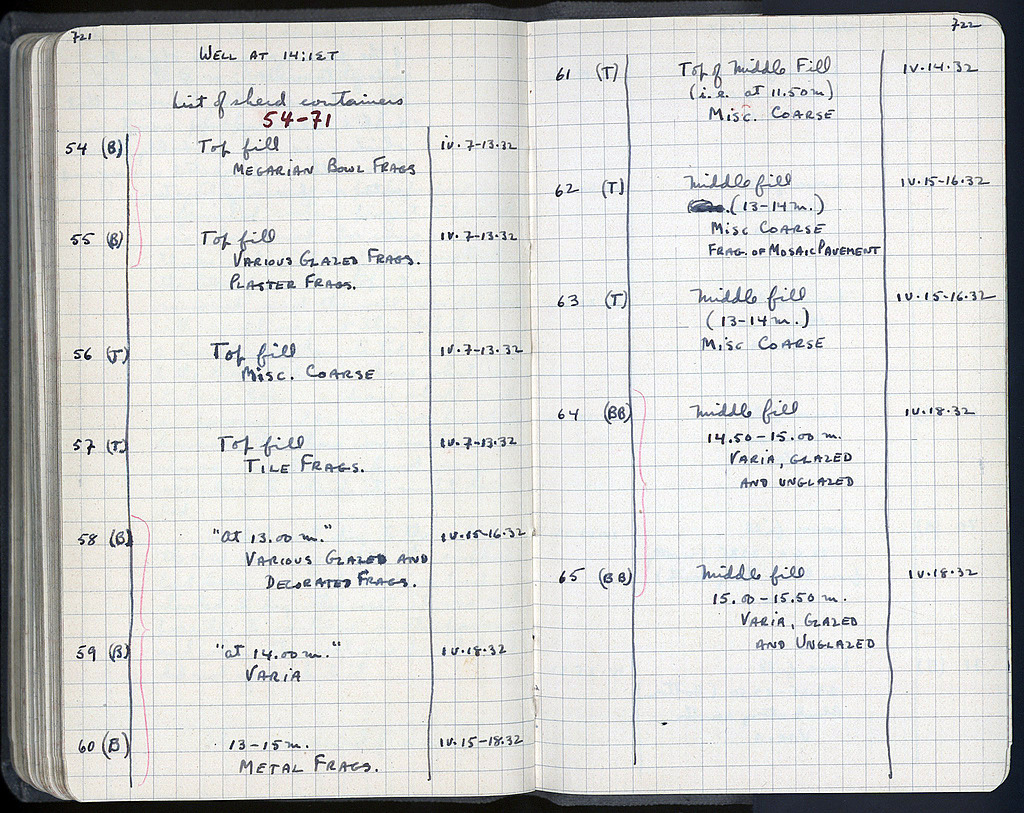 721
WELL AT 14:1ET
List of sherd containers
54-71
54 (B) Top fill iv.7-13.32
MEGARIAN BOWL FRAGS
55 (B) Top fill IV.7-13.32
VARIOUS GLAZED FRAGS.
PLASTER FRAGS.
56 (T) Top fill IV.7-13.32
Misc. COARSE
57 (T) Top fill IV.7-13.32
TILE FRAGS.
58 (B) "at 13.00 m." IV.15-16.32
VARIOUS GLAZED AND
DECORATED FRAGS.
59 (B) "at 14.00 m." IV.18.32
VARIA
60 (B) 13-15 m. IV.15-18.32
METAL FRAGS.
722
61 (T) Top of Middle Fill IV.14.32
(i.e. at 11.50 m)
Misc. COARSE
62 (T) Middle fill IV.15-16.32
(13-14 m.)
Misc COARSE
FRAG. OF MOSAIC PAVEMENT
63 (T) Middle fill IV.15-16.32
(13-14 m.)
Misc COARSE
64 (BB) Middle fill IV.18.32
14.50-15.00 m.
VARIA, GLAZED
AND UNGLAZED
65 (BB) Middle fill IV.18.32
15.00-15.50 m.
VARIA, GLAZED
AND UNGLAZED